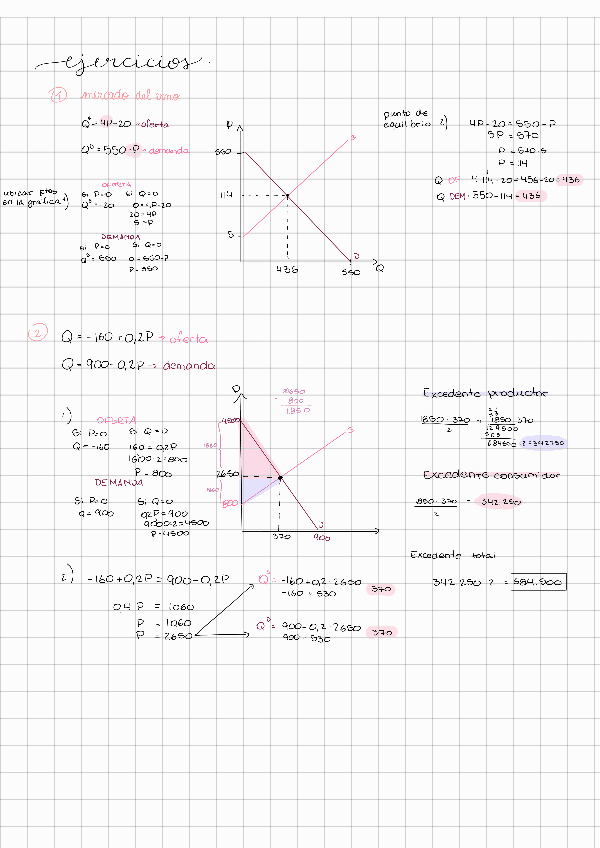 ejercicios.
1) mercado del vino
Qˢ = 4P-20 → oferta
Qᴰ = 550-P → demanda
ubicar ptos
en la gráfica 1)
OFERTA
Si P=0 Si Q=0
Qˢ = -20 0=4P-20
20=4P
5=P
DEMANDA
Si P=0 Si Q=0
Qᴰ=550 0=550-P
P=550
P
550
114
5
436
550
Q
S
D
punto de
equilibrio 2)
4P-20=550-P
5P=570
P = 570:5
P = 114
Q OF. 4·114-20=456-20=436
Q DEM. 550-114=436
2
Q = -160+0,2P → oferta
Q = 900-0,2P → demanda
1)
OFERTA
Si P=0 Si Q=0
Q=-160 160=0,2P
1600:2=800
P=800
DEMANDA
Si P=0 Si Q=0
Q=900 0,2P=900
9000:2=4500
P=4500
P
4500
1850
2650
1850
800
370
900
S
D
2650
800
1,850
Excedente productor
1850·370
2
= 1850·370
129500
684500:2=342250
Excedente consumidor
1850·370
2
= 342.250
Excedente total
342 250·2 = 684.500
2) -160+0,2P = 900-0,2P
0,4P = 1060
P = 1060
P = 2650
Qˢ = -160+0,2·2650
-160+530 370
Qᴰ = 900-0,2·2650
900-530 370